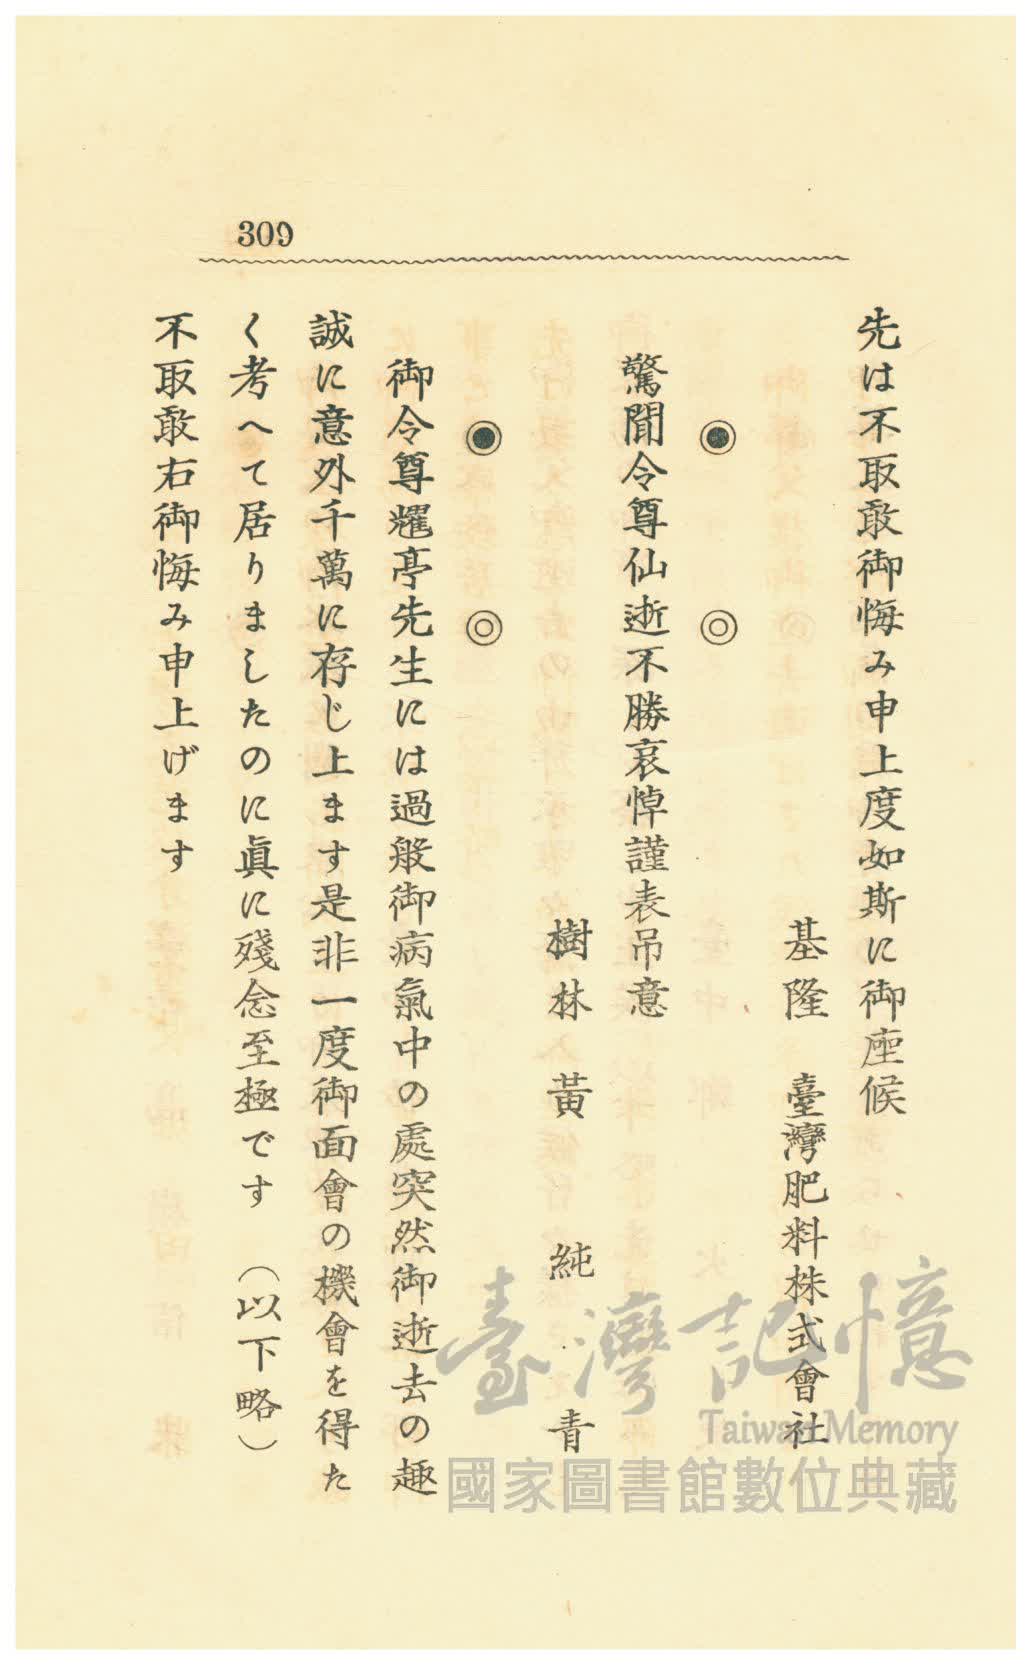 309
先は不取敢御悔み申上度如斯に御座候
基隆　臺灣肥料株式會社
◉　◎
驚聞令尊仙逝不勝哀悼謹表吊意
樹林　黃純青
◉　◎
御令尊耀亭先生には過般御病氣中の處突然御逝去の趣
誠に意外千萬に存じ上ます是非一度御面會の機會を得た
く考へて居りましたのに眞に殘念至極です　（以下略）
不取敢右御悔み申上げます
臺灣記憶
Taiwan Memory
國家圖書館數位典藏